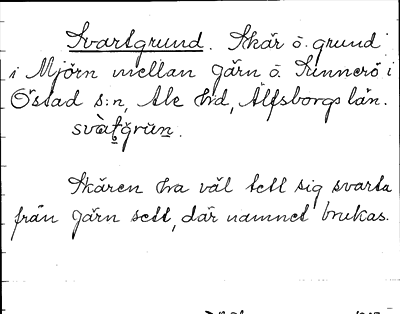 Svartgrund. Skär o. grund
i Mjörn mellan Gärn o. Sunnerö i
Östad s:n, Ale hd, Älfsborgs län.
svàt̬grun.
Skären ha väl tett sig svarta
från Gärn sett, där namnet brukas.